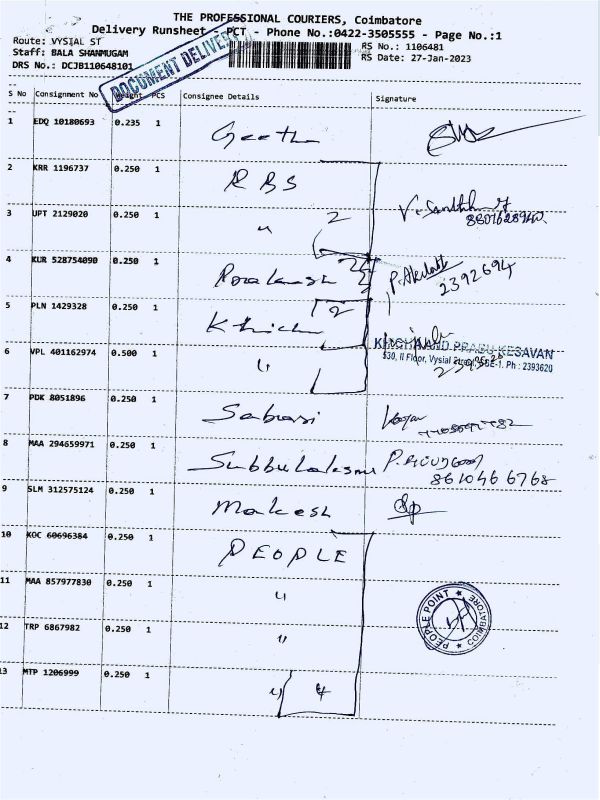 THE PROFESSIONAL COURIERS, Coimbatore
Delivery Runsheet - PCT - Phone No.:0422-3505555 - Page No.:1
Route: VYSIAL ST
Staff: BALA SHANMUGAM
DRS No.: DCJB110648101
RS No.: 1106481
RS Date: 27-Jan-2023
DOCUMENT DELIVERY
S No Consignment No Weight PCS Consignee Details Signature
1 EDQ 10180693 0.235 1 Geetha
2 KRR 1196737 0.250 1 RBS
3 UPT 2129020 0.250 1 " 2
4 KUR 528754090 0.250 1 Prakash 2392694
5 PLN 1429328 0.250 1 2
KHICHA AND PRABU KESAVAN
530, II Floor, Vysial Street, CBE-1. Ph : 2393620
6 VPL 401162974 0.500 1 "
7 PDK 8051896 0.250 1 Sabari
8 MAA 294659971 0.250 1 8610466768
9 SLM 312575124 0.250 1 Makesh
10 KOC 60696384 0.250 1 PEOPLE
11 MAA 857977830 0.250 1 "
PEOPLE POINT ★ COIMBATORE ★
12 TRP 6867982 0.250 1 "
13 MTP 1206999 0.250 1 " 4